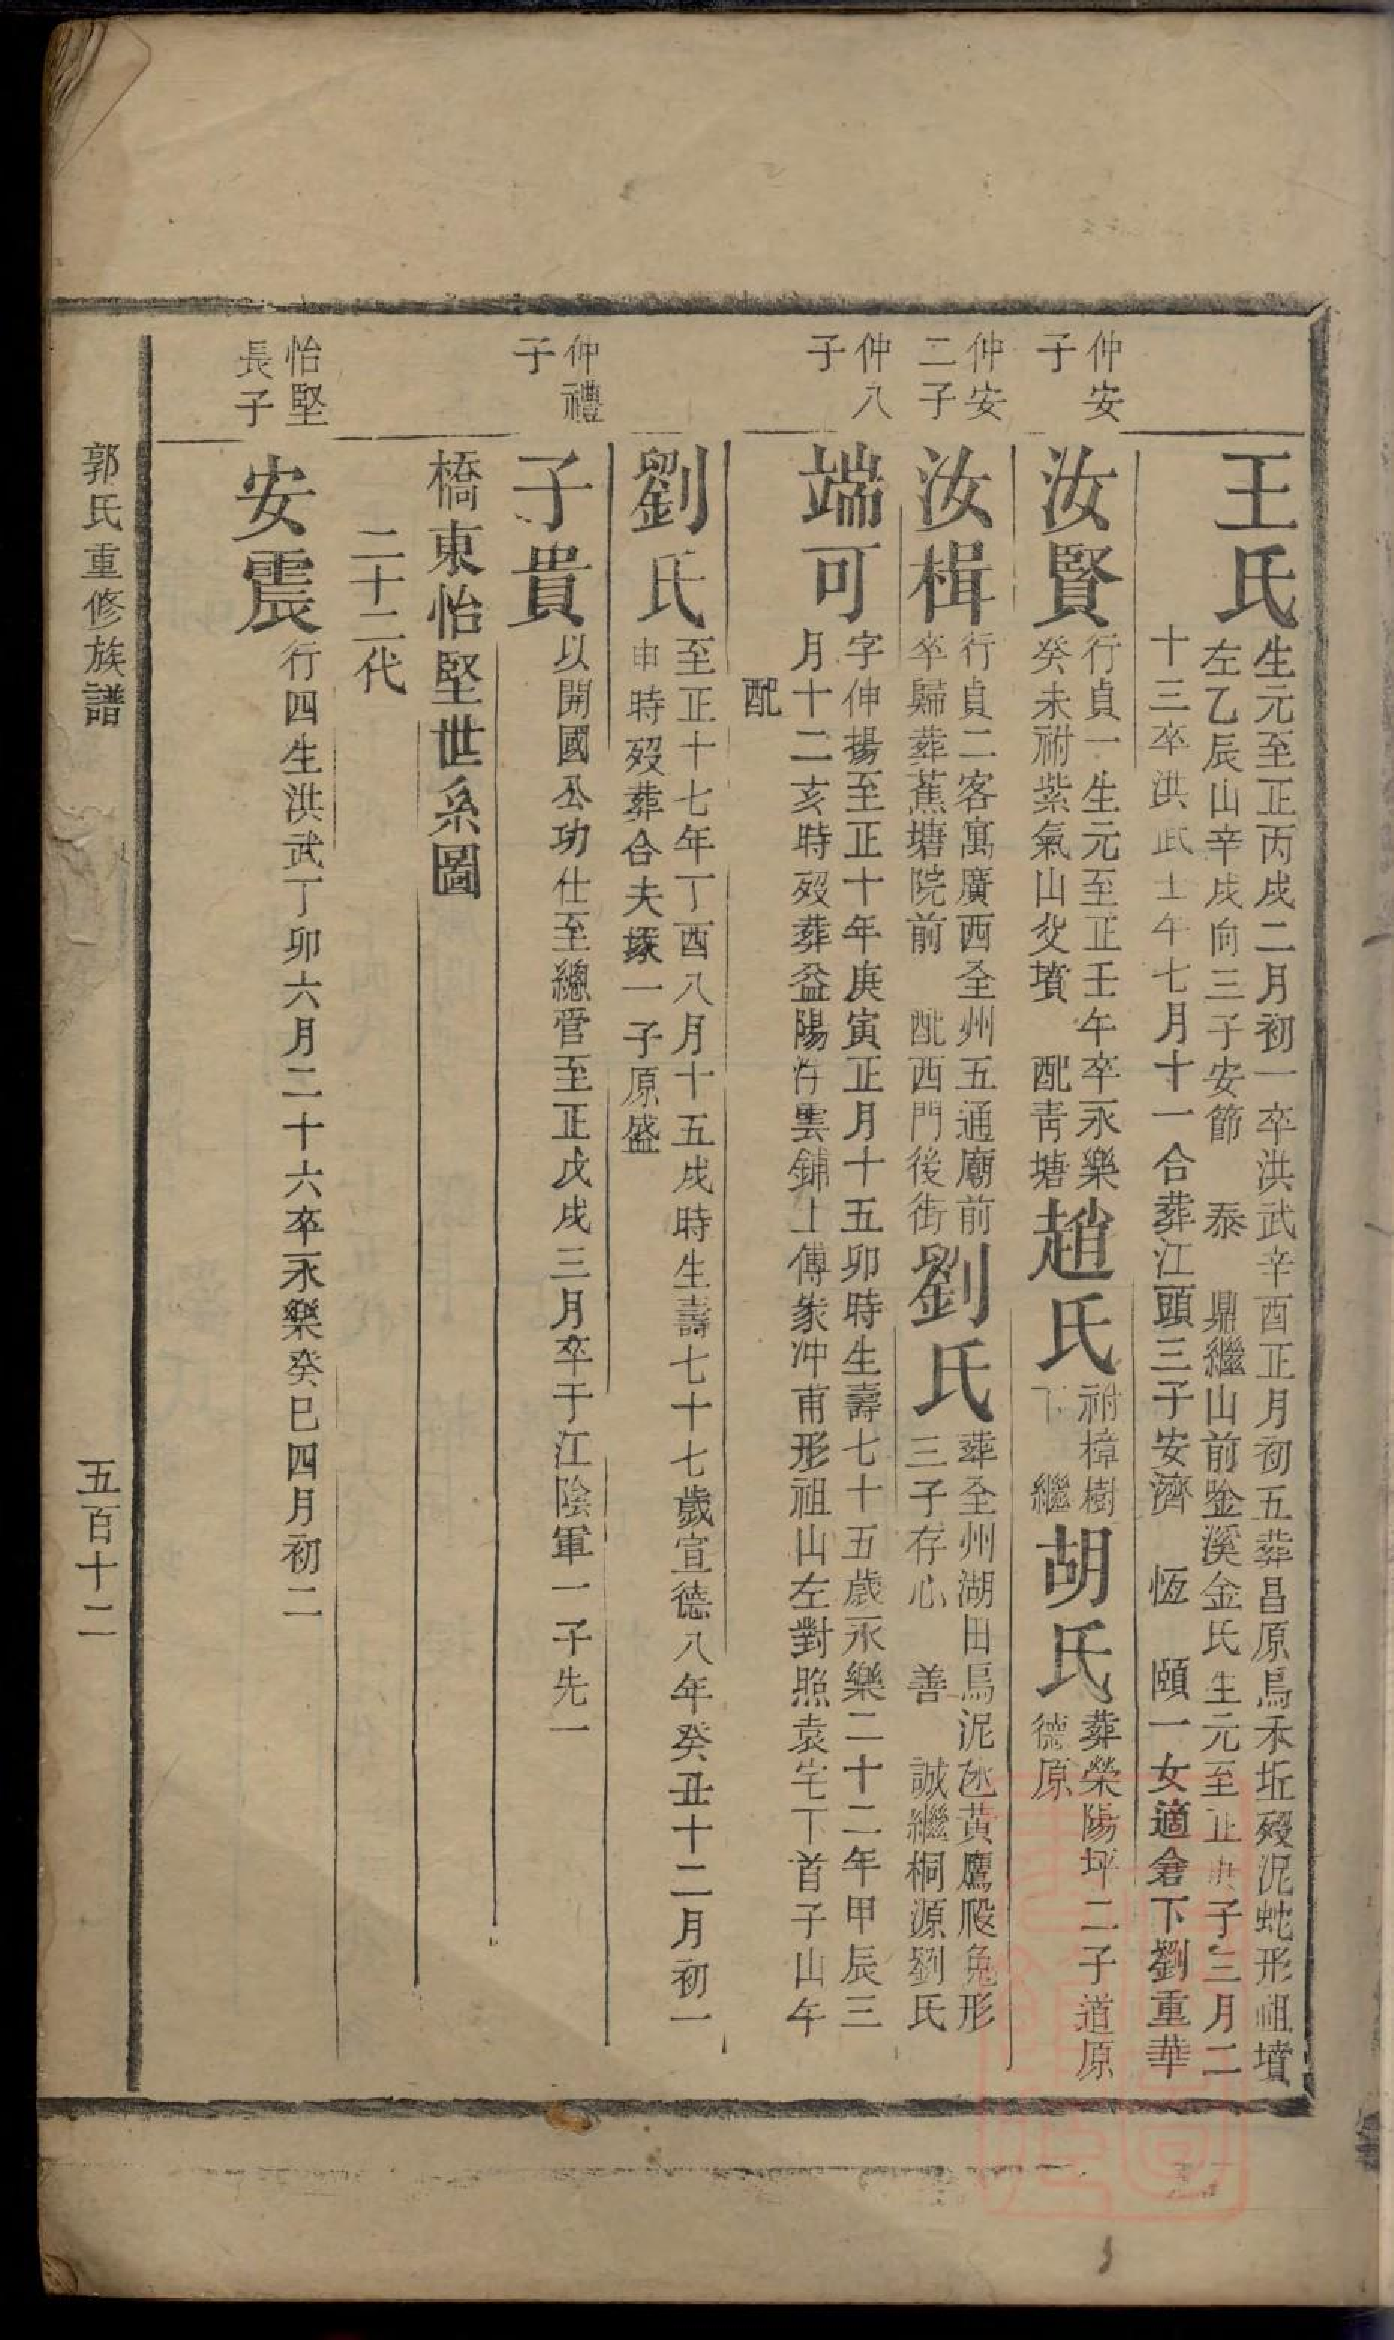 王氏
生元至正丙戌二月初一卒洪武辛酉正月初五葬昌原鳥禾坵歿泥蛇形祖墳
左乙辰山辛戌向三子安節 泰 鼎繼山前金溪金氏生元至正 子三月二
十三卒洪武 午七月十一合葬江頭三子安濟 恆 頤一女適倉下劉重華
仲安
子
汝賢
行貞一生元至正壬午卒永樂
癸未祔紫氣山父墳 配青塘
趙氏
祔樟樹
下 繼
胡氏
葬榮陽坪二子道原
德原
仲安
二子
汝楫
行貞二客寓廣西全州五通廟前
卒歸葬蕉塘院前 配西門後街
劉氏
葬全州湖田烏泥氹黃鷹股兔形
三子存心 善 誠繼桐源劉氏
仲八
子
端可
字伸揚至正十年庚寅正月十五卯時生壽七十五歲永樂二十二年甲辰三
月十二亥時歿葬益陽浮雲鋪上傅家沖甫形祖山左對照袁宅下首子山午
配
劉氏
至正十七年丁酉八月十五戌時生壽七十七歲宣德八年癸丑十二月初一
申時歿葬合夫塚一子原盛
仲禮
子
子貴
以開國公功仕至總管至正戊戌三月卒于江陰軍一子先一
橋東怡堅世系圖
二十二代
怡堅
長子
安震
行四生洪武丁卯六月二十六卒永樂癸巳四月初二
郭氏重修族譜
五百十二